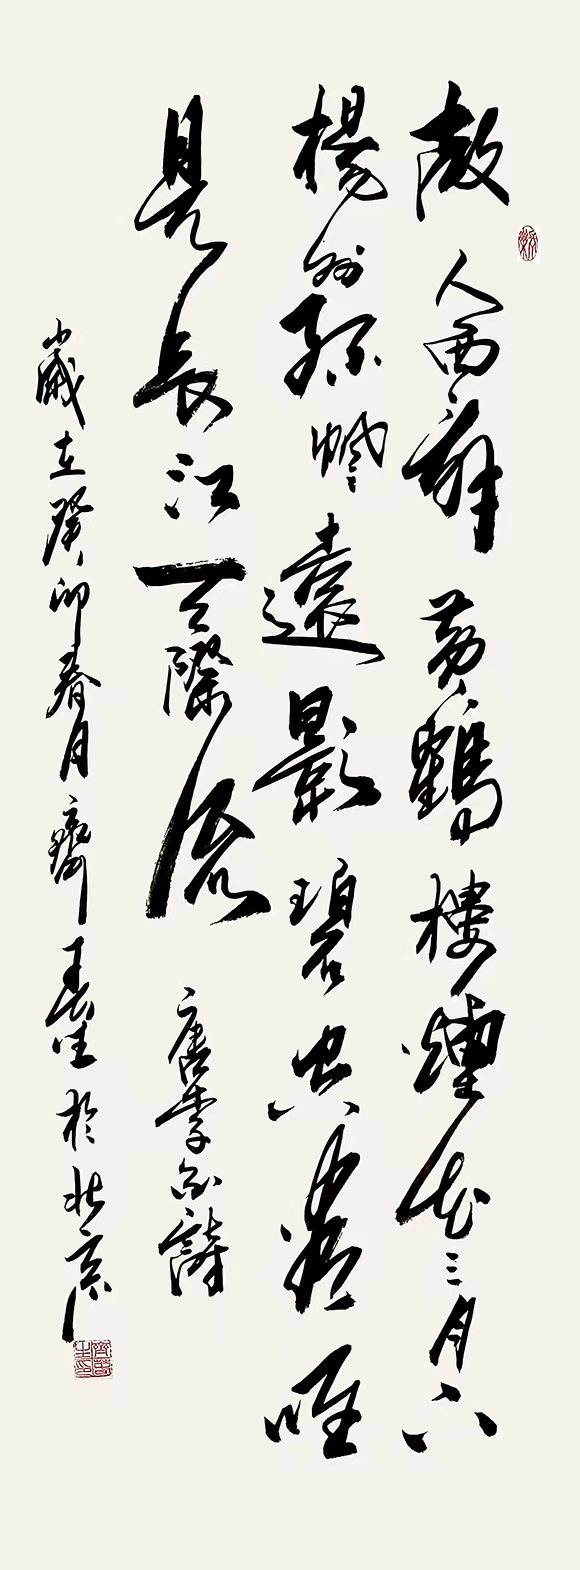 故人西辭黃鶴樓煙花三月下
楊州孤帆遠影碧空盡唯
見長江天際流 唐李白詩
歲在癸卯春月齊生於北京